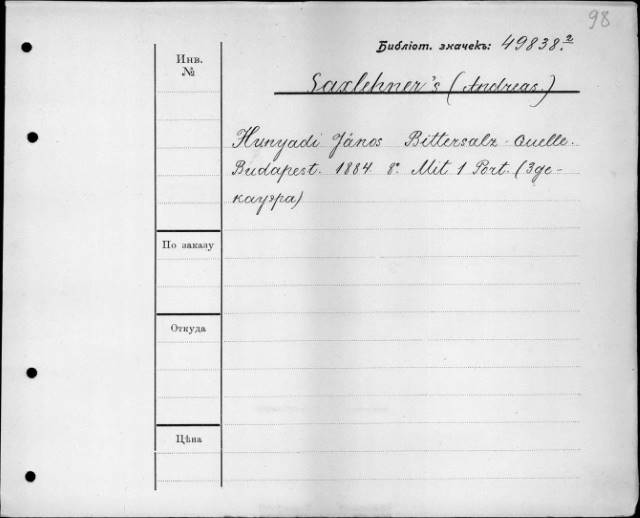 98
Библіот. значекъ: 49838.2
Инв.
№
Saxlehner's (Andreas.)
Hunyadi János Bittersalz-Quelle.
Budapest. 1884. 8°. Mit 1 Port. (Зде-
кауэра)
По заказу
Откуда
Цѣна